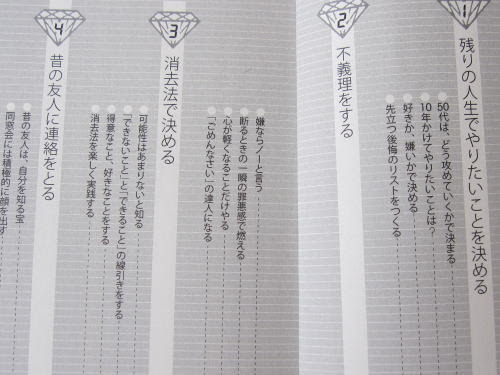 1
残りの人生でやりたいことを決める
50代は、どう攻めていくかで決まる
10年かけてやりたいことは?
好きか、嫌いかで決める
先立つ後悔のリストをつくる
2
不義理をする
嫌ならノーと言う
断るときの一瞬の罪悪感で燃える
心が軽くなることだけやる
「ごめんなさい」の達人になる
3
消去法で決める
可能性はあまりないと知る
「できないこと」と「できること」の線引きをする
得意なこと、好きなことをする
消去法を楽しく実践する
4
昔の友人に連絡をとる
昔の友人は、自分を知る宝
同窓会には積極的に顔を出す